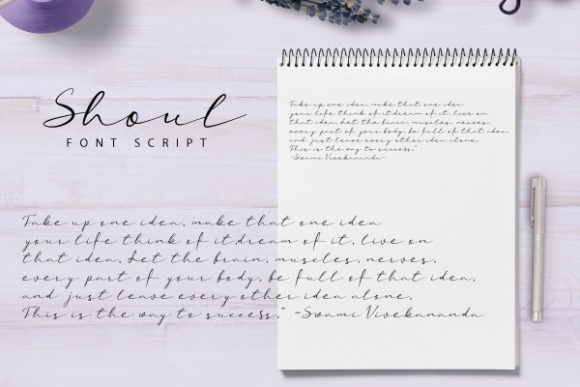 Shoul
FONT SCRIPT
Take up one idea, make that one idea
your life think of it,dream of it, live on
that idea, Let the brain, muscles, nerves,
every part of your body, be full of that idea,
and just leave every other idea alone,
This is the way to success."
-Swami Vivekananda
Take up one idea, make that one idea
your life think of it,dream of it, live on
that idea, Let the brain, muscles, nerves,
every part of your body, be full of that idea,
and just leave every other idea alone,
This is the way to success." -Swami Vivekananda